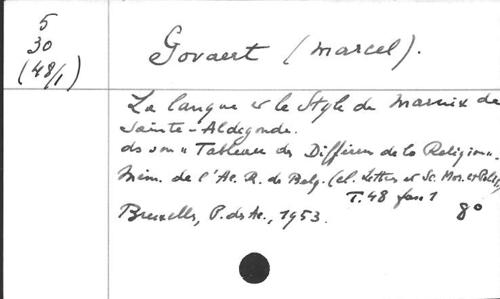 5
30
(48/1)
Govaert (Marcel).
La langue et le Style de Marnix de
Sainte-Aldegonde.
ds son "Tableau des Différens de la Religion".
Mém. de l'Ac. R. de Belg. (cl. Lettres et Sc. Mor. et Polit.)
T. 48 fasc 1
Bruxelles, P. ds Ac., 1953. 8°